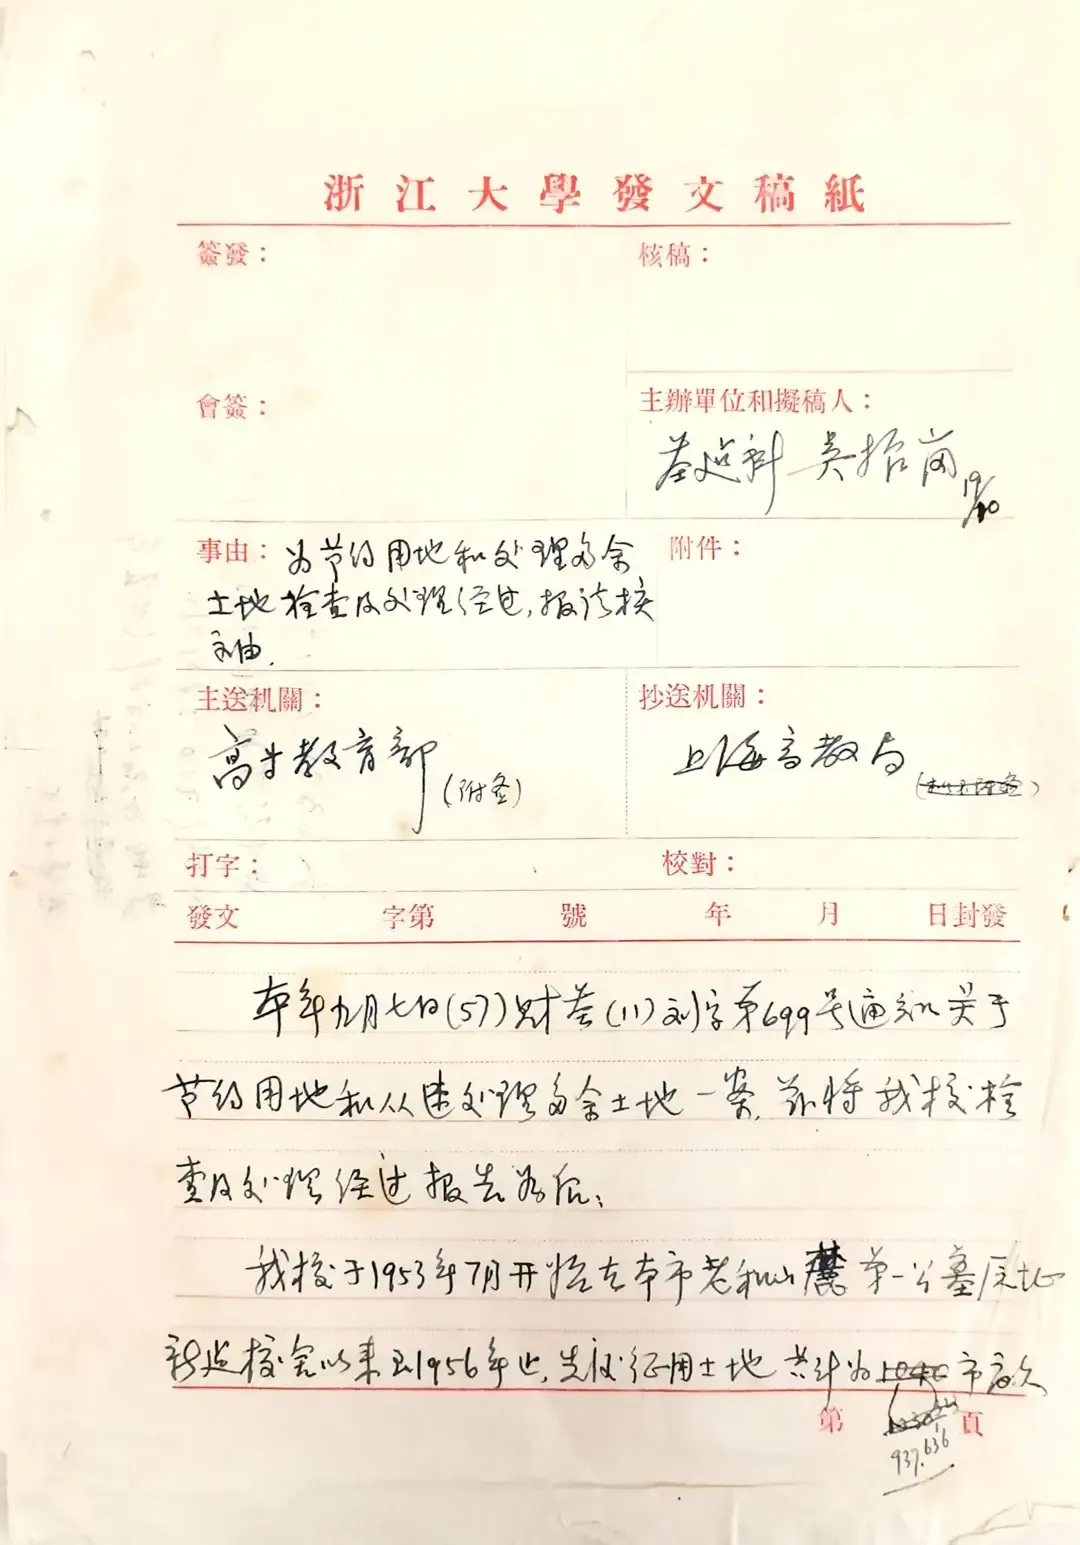 浙江大學發文稿紙
簽發：
核稿：
會簽：
主辦單位和擬稿人：
基建科 吴招岗
19/10
事由：为节约用地和处理多余
土地检查及处理经过，报请核
示由．
附件：
主送机關：
高等教育部
抄送机關：
上海高教局
打字：
校對：
發文 字第 號 年 月 日封發
本年九月七日(57)财基(11)刘字第699号通知关于
节约用地和从速处理多余土地一案，兹将我校检
查及处理经过报告如后：
我校于1953年7月开始在本市老和山麓第一公墓原址
新造校舍以来至1956年止，先后征用土地共计为 市亩
第 頁
937.636